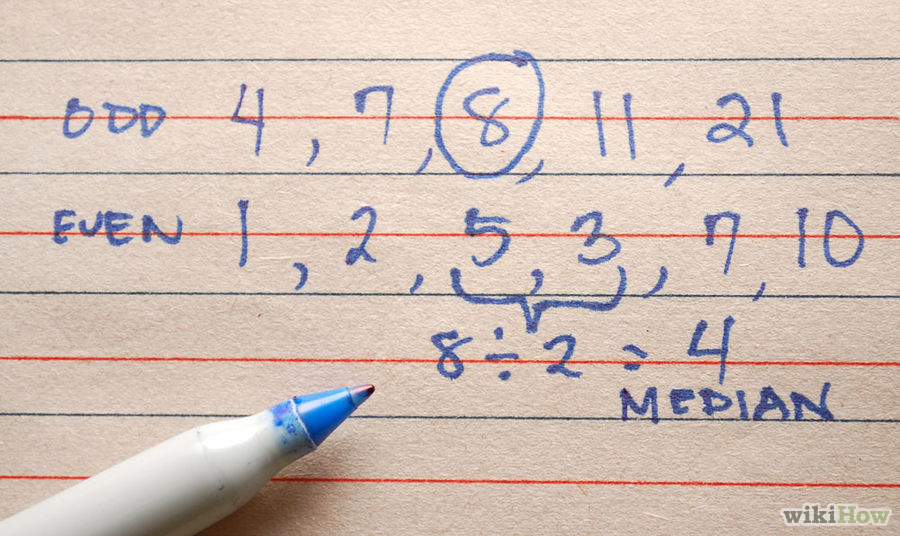 ODD 4, 7, 8, 11, 21
EVEN 1, 2, 5, 3, 7, 10
8 ÷ 2 = 4
MEDIAN
wikiHow